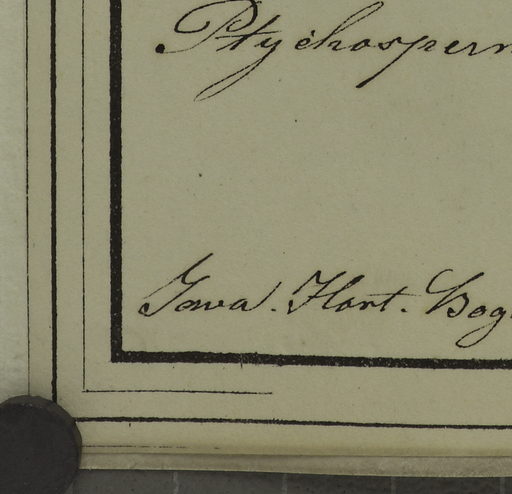 Ptychosperm
Java. Hort. Bog